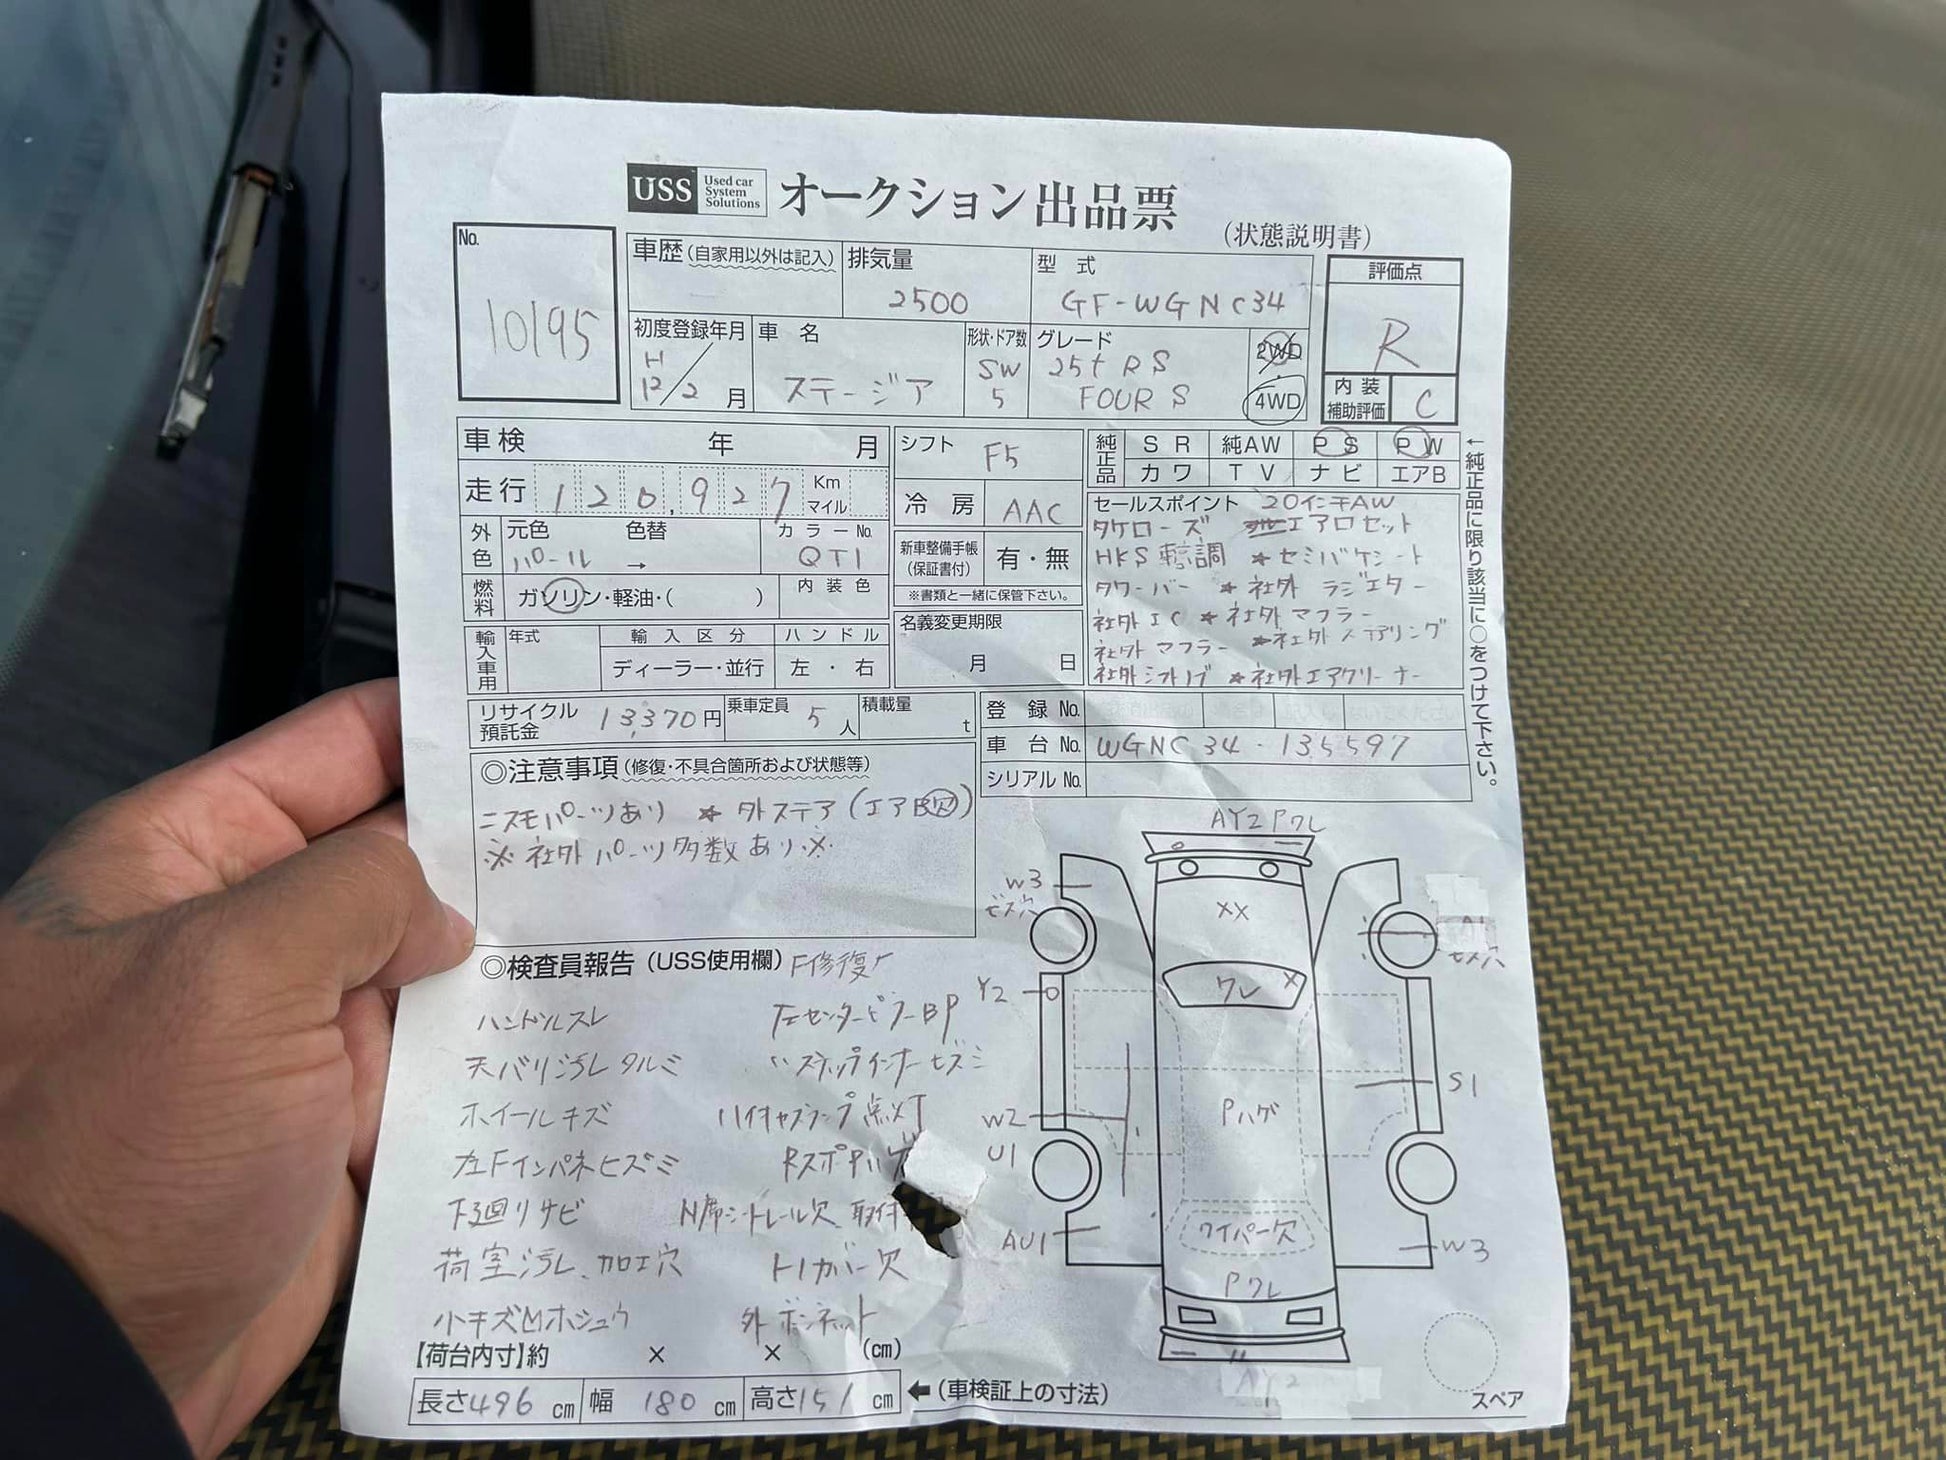 USS Used car System Solutions オークション出品票
(状態説明書)
No.
10195
車歴(自家用以外は記入)
排気量
2500
型 式
GF-WGNC34
評価点
R
内装補助評価 C
初度登録年月
H 12/2月
車 名
ステージア
形状・ドア数
SW 5
グレード
25t RS
FOUR S
2WD
4WD
車検 年 月
シフト F5
純正品 SR 純AW PS PW
カワ TV ナビ エアB
←純正品に限り該当に○をつけて下さい。
走行 120,927 Km マイル
冷 房 AAC
セールスポイント 20インチAW
タケローズ エアロセット
HKS車高調 ★セミバケシート
タワーバー ★社外 ラジエター
社外IC ★社外マフラー
社外マフラー ★社外ステアリング
社外シフトノブ ★社外エアクリーナー
外色 元色 色替 カラーNo.
パール → QT1
新車整備手帳(保証書付) 有・無
※書類と一緒に保管下さい。
燃料 ガソリン・軽油・( ) 内装色
輸入車用 年式 輸入区分 ハンドル
ディーラー・並行 左・右
名義変更期限
月 日
リサイクル預託金 13,370円
乗車定員 5人
積載量 t
登 録 No.
車 台 No. WGNC34-135597
シリアル No.
◎注意事項(修復・不具合箇所および状態等)
ニスモパーツあり ★外ステア(エアB欠)
※社外パーツ多数あり※
◎検査員報告(USS使用欄) F修復
ハンドルスレ 左センターピラーBP
天バリ汚レタルミ 〃ステップインナーヒズミ
ホイールキズ ハイキャスランプ点灯
左Fインパネヒズミ RスポPハゲ
下廻リサビ N席シートレール欠 取付
荷室汚レ、加工穴 トノカバー欠
小キズMホシュウ 外ボンネット
【荷台内寸】約 × × (cm)
長さ496cm 幅180cm 高さ151cm ←(車検証上の寸法)
AY2Pワレ
W3
ビス穴
XX
A1
ビス穴
Y2
ワレ X
S1
W2
U1
Pハゲ
AU1
ワイパー欠
W3
Pワレ
AY2
スペア